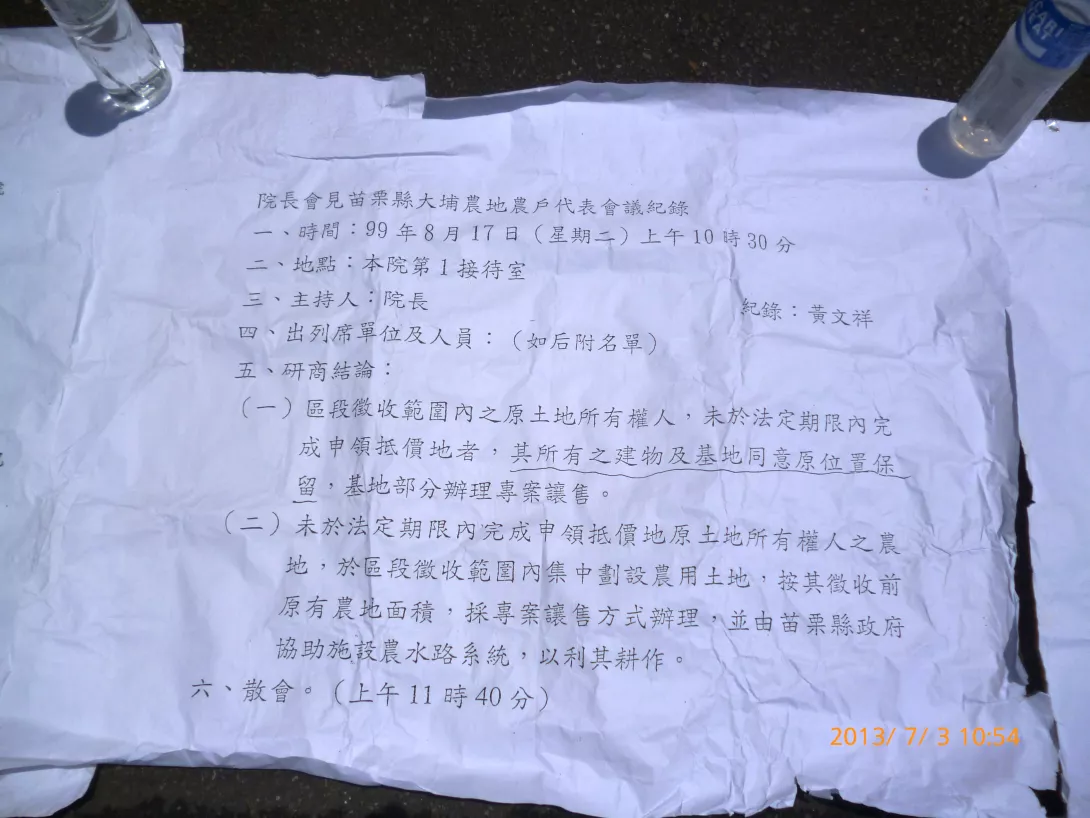 院長會見苗栗縣大埔農地農戶代表會議紀錄
一、時間：99 年 8 月 17 日（星期二）上午 10 時 30 分
二、地點：本院第 1 接待室
三、主持人：院長
紀錄：黃文祥
四、出列席單位及人員：（如后附名單）
五、研商結論：
（一）區段徵收範圍內之原土地所有權人，未於法定期限內完
成申領抵價地者，其所有之建物及基地同意原位置保
留，基地部分辦理專案讓售。
（二）未於法定期限內完成申領抵價地原土地所有權人之農
地，於區段徵收範圍內集中劃設農用土地，按其徵收前
原有農地面積，採專案讓售方式辦理，並由苗栗縣政府
協助施設農水路系統，以利其耕作。
六、散會。（上午 11 時 40 分）
2013/ 7/ 3 10:54